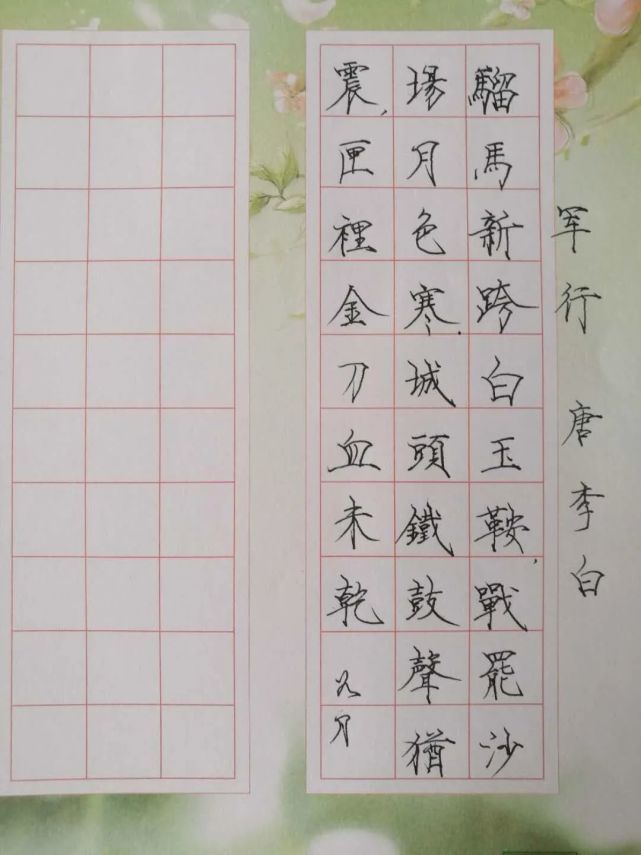 军行 唐 李白
騮馬新跨白玉鞍,戰罷沙
場月色寒.城頭鐵鼓聲猶
震,匣裡金刀血未乾